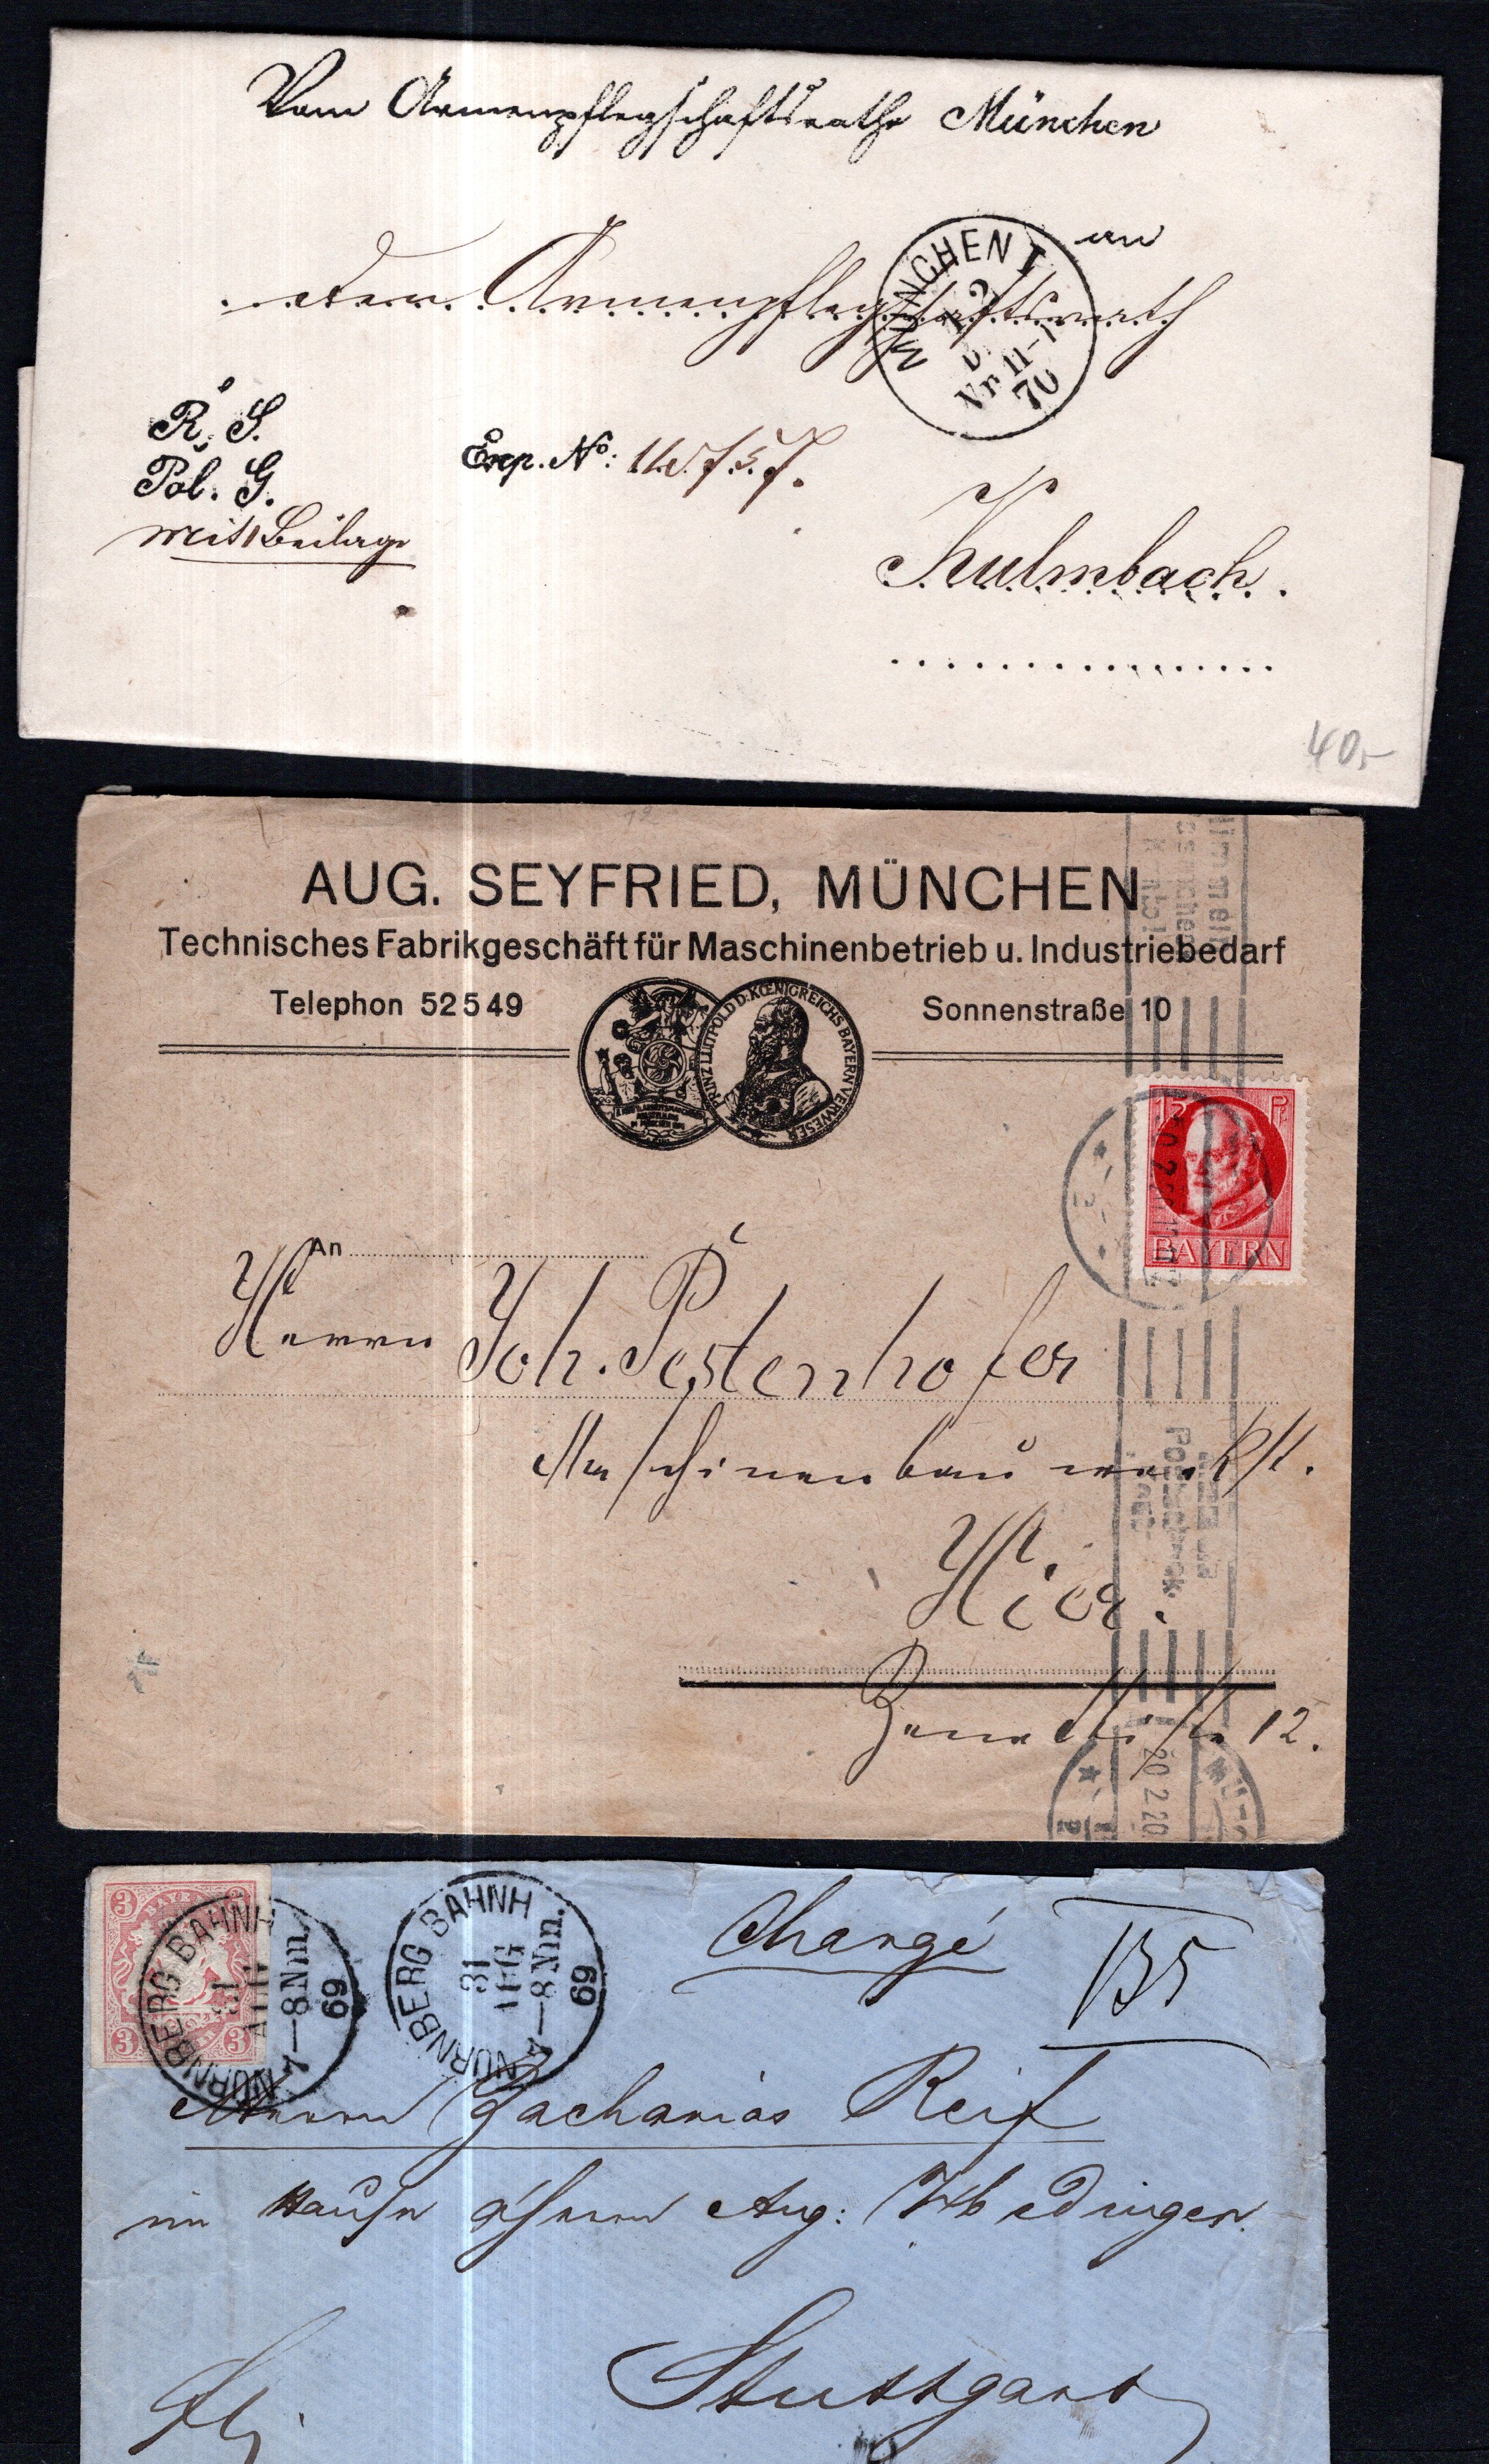 Vom Armenpflegschaftsrathe München
an
den Armenpflegschaftsrath
MÜNCHEN I
12
Vr 11-1
70
R. S.
Pol. G.
mit 1 Beilage
Exp. No:
Kulmbach.
40,-
AUG. SEYFRIED, MÜNCHEN
Technisches Fabrikgeschäft für Maschinenbetrieb u. Industriebedarf
Telephon 52549
Sonnenstraße 10
PRINZ LUITPOLD D. KŒNIGREICHS BAYERN VERWESER
15 Pf
BAYERN
An
Herrn Joh. Pestenhofer
Maschinenbauwerkst.
Hier.
Zenettistr 12.
Postscheck-
20 2 20
3 3
BAYERN
3 3
NÜRNBERG BAHNH
31
AUG
7-8 Nm.
69
NÜRNBERG BAHNH
31
AUG
7-8 Nm.
69
Chargé
135
Herrn Zacharias Reif
im Hause
Aug:
Stuttgart